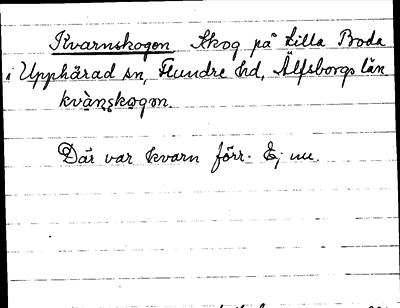 Kvarnskogen Skog på Lilla Boda
i Upphärad sn, Flundre hd, Älfsborgs län
kvànskogən.
Där var kvarn förr. Ej nu.